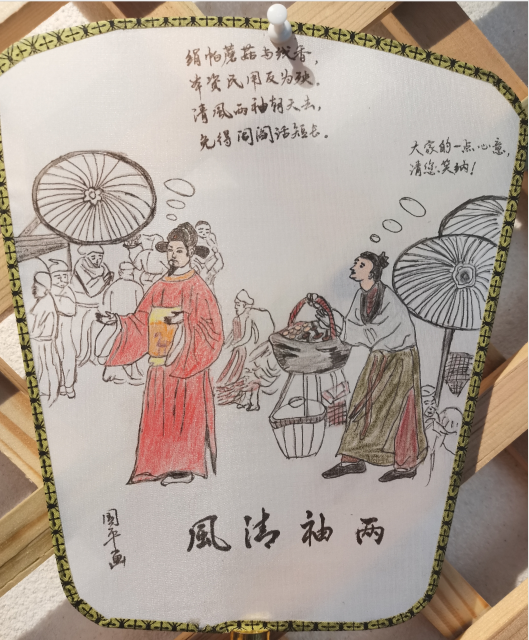 绢帕蘑菇与线香,
本资民用反为殃。
清风两袖朝天去,
免得闾阎话短长。
大家的一点心意,
请您笑纳!
两袖清風
国平画